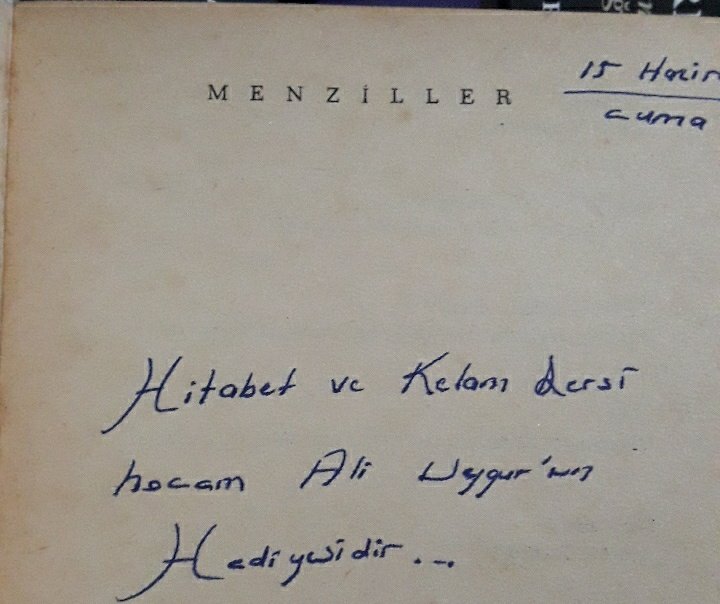 MENZİLLER
15 Hazir
Cuma
Hitabet ve Kelam dersi
hocam Ali Uygur'un
Hediyesidir...